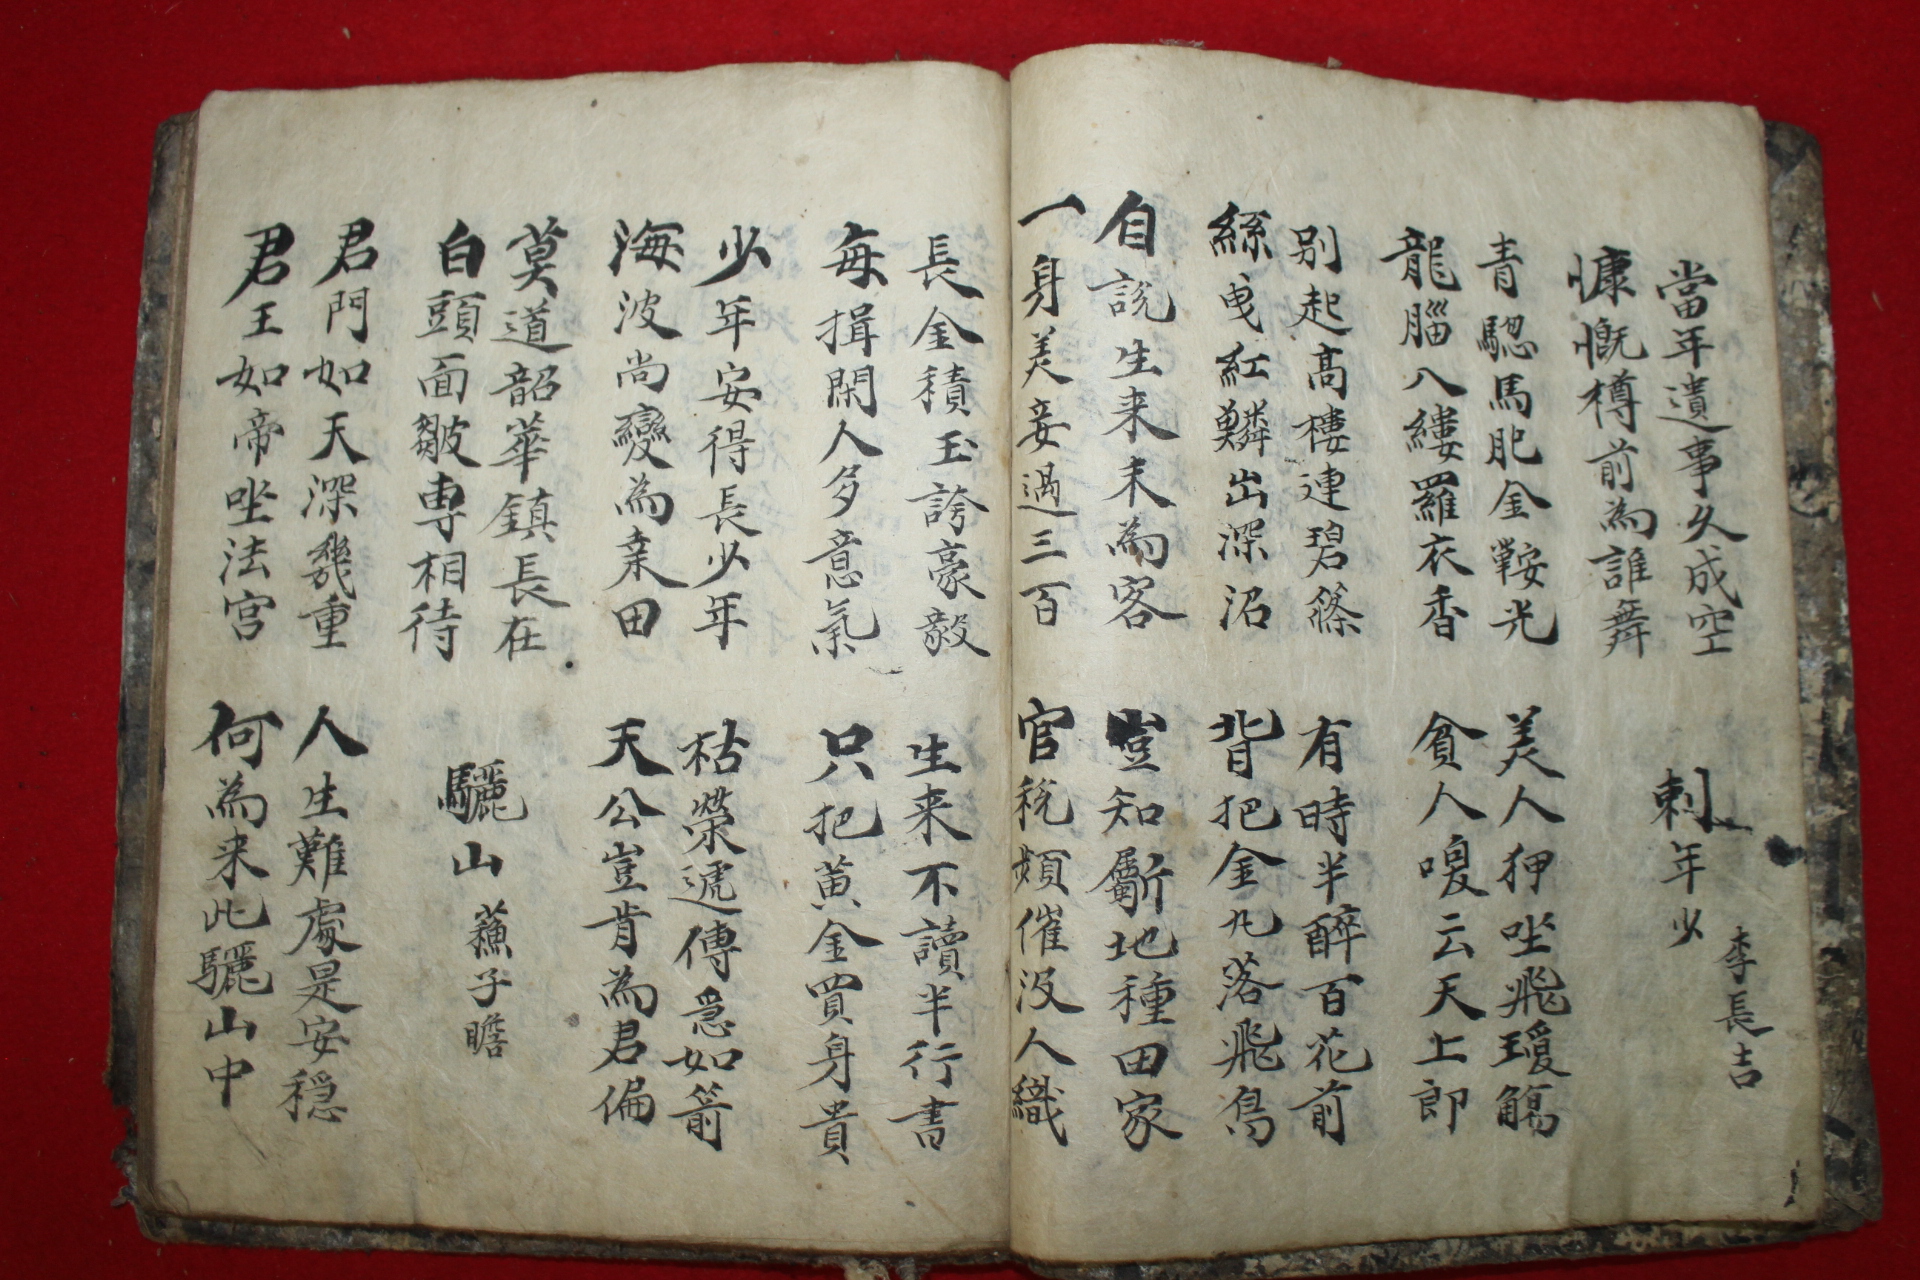 當年遺事久成空
慷慨樽前為誰舞
刺年少 李長吉
青驄馬肥金鞍光
龍腦八縷羅衣香
美人狎坐飛瓊觴
貧人喚云天上郎
別起高樓連碧篠
絲曳紅鱗出深沼
有時半醉百花前
背把金丸落飛鳥
自說生来未為客
一身美妾過三百
豈知斸地種田家
官稅頻催没人織
長金積玉誇豪毅
每揖閑人多意氣
生来不讀半行書
只把黃金買身貴
少年安得長少年
海波尚變為桒田
枯榮遞傳急如箭
天公豈肯為君偏
莫道韶華鎮長在
白頭面皺專相待
驪山 蘓子瞻
君門如天深幾重
君王如帝坐法宮
人生難處是安穏
何為来此驪山中